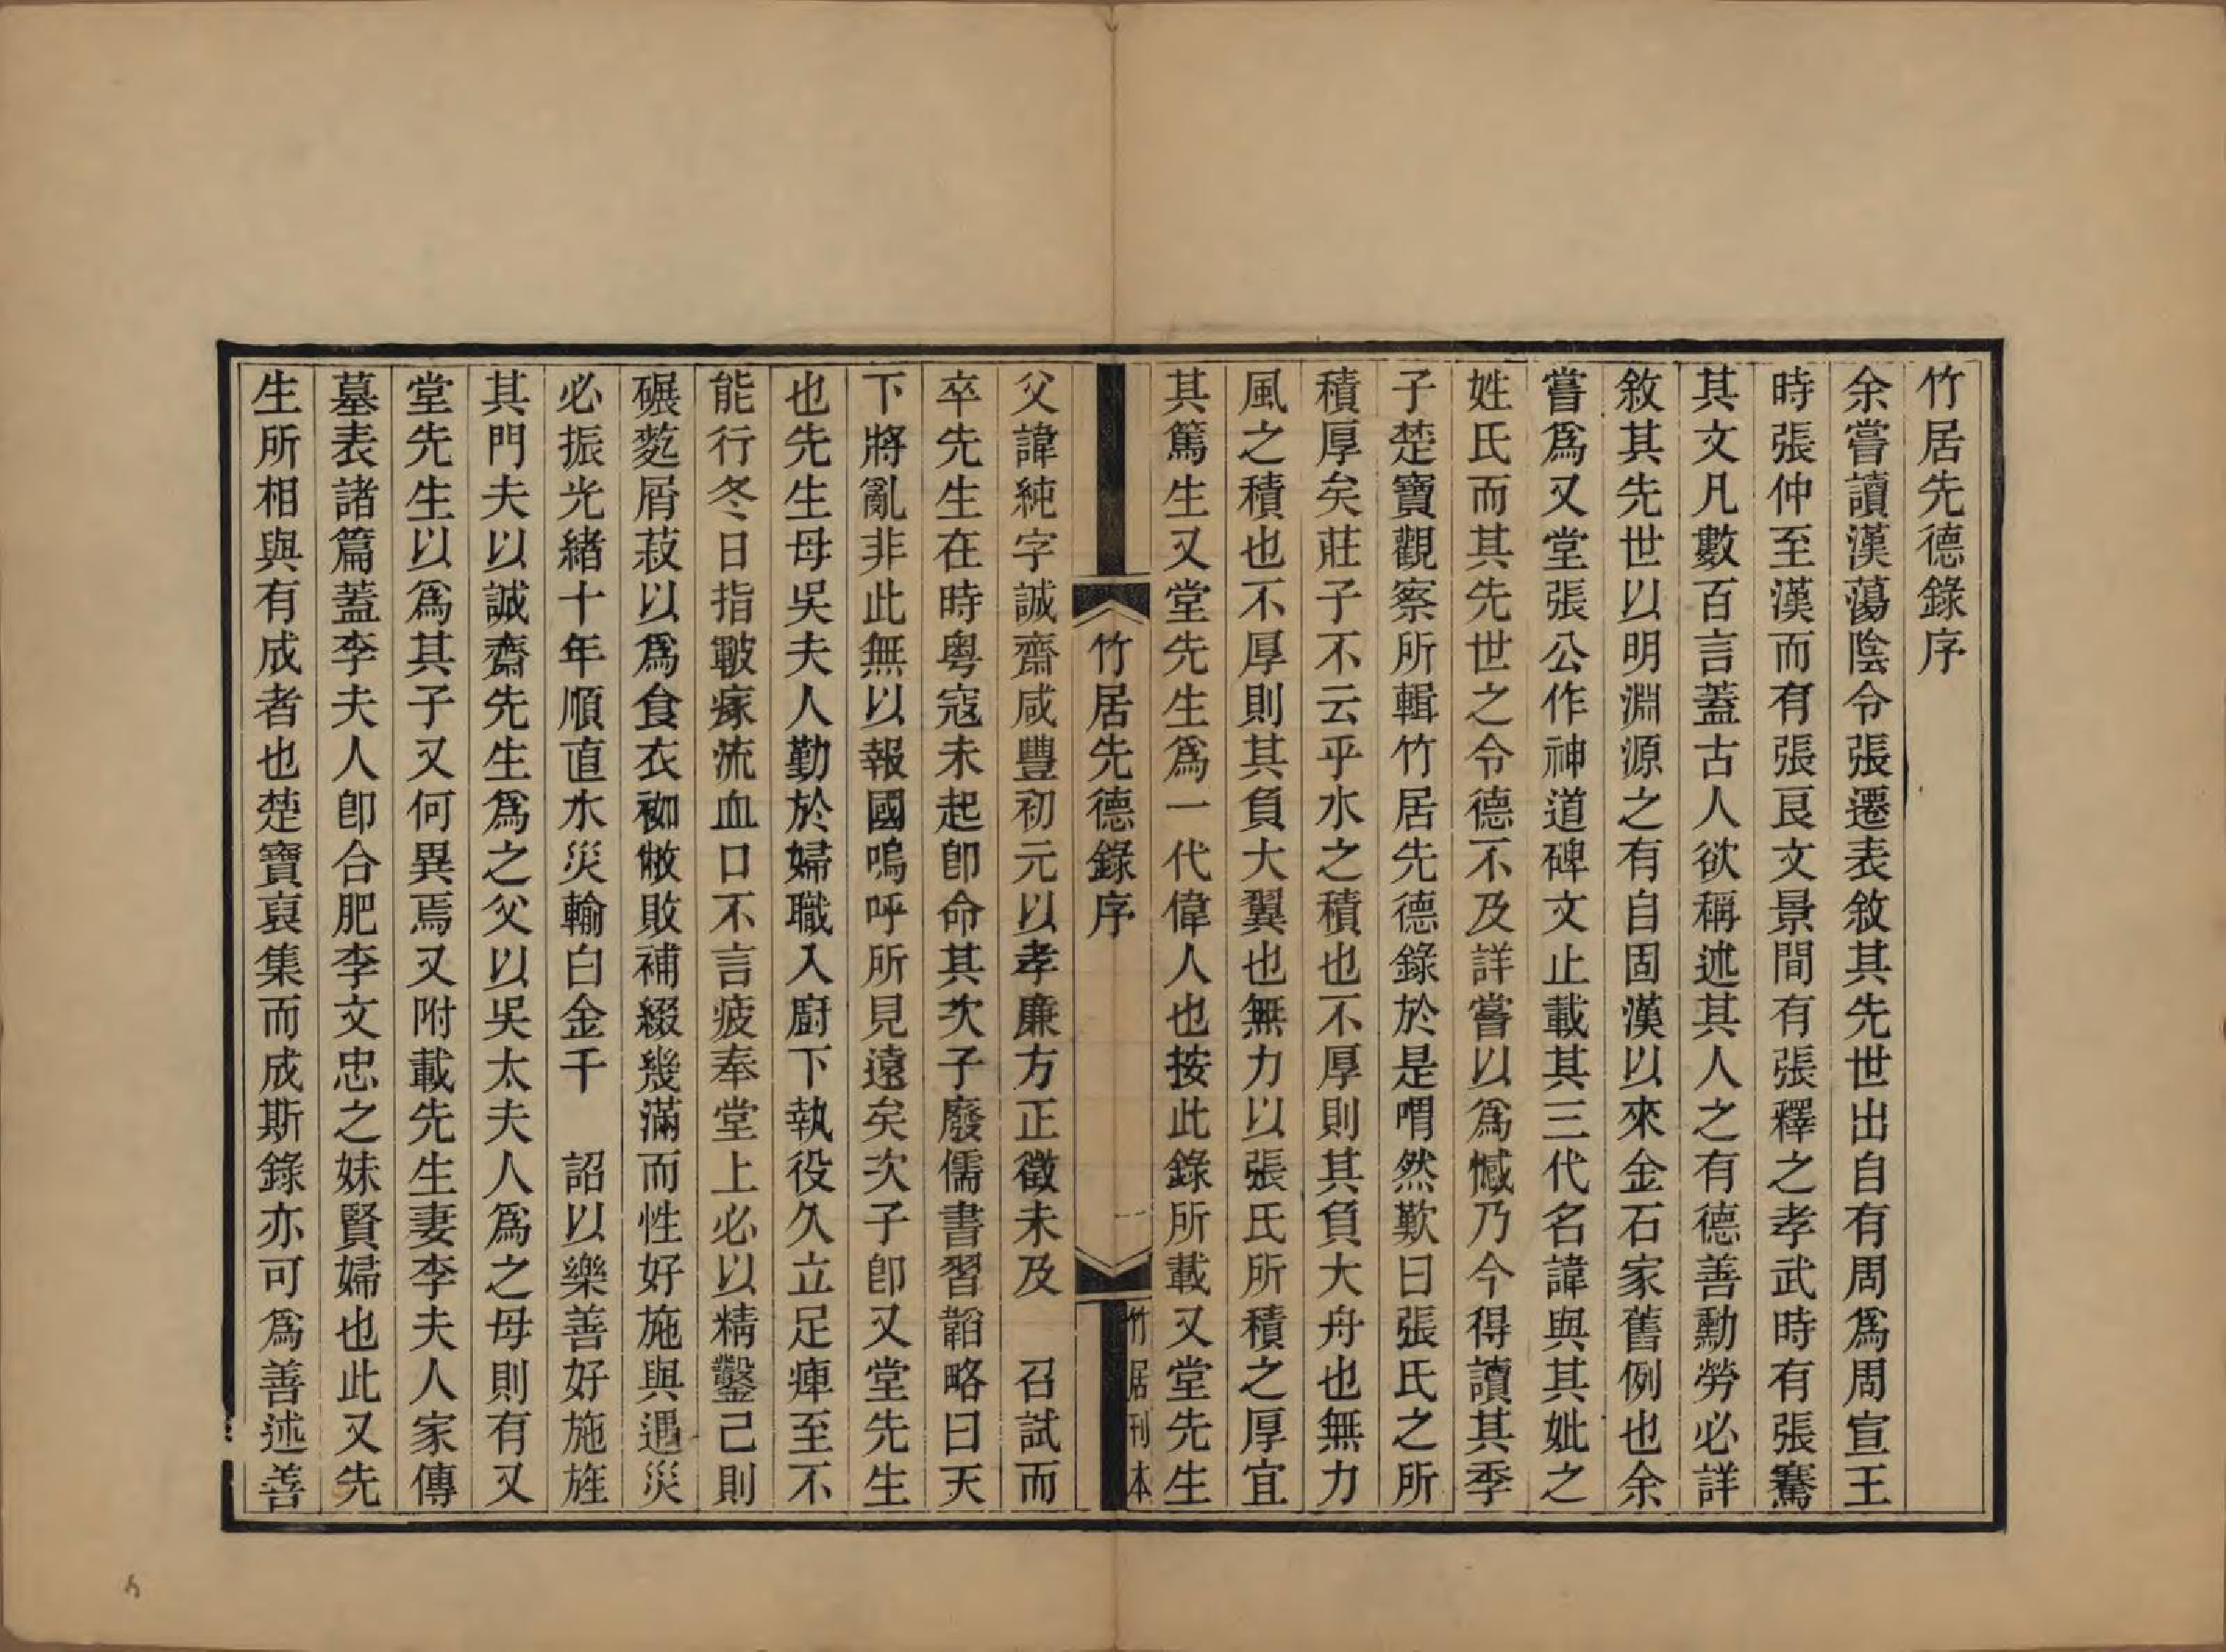 竹居先德錄序
余嘗讀漢蕩陰令張遷表敘其先世出自有周爲周宣王
時張仲至漢而有張良文景間有張釋之孝武時有張騫
其文凡數百言蓋古人欲稱述其人之有德善勳勞必詳
敘其先世以明淵源之有自固漢以來金石家舊例也余
嘗爲又堂張公作神道碑文止載其三代名諱與其妣之
姓氏而其先世之令德不及詳嘗以爲憾乃今得讀其季
子楚寶觀察所輯竹居先德錄於是喟然歎曰張氏之所
積厚矣莊子不云乎水之積也不厚則其負大舟也無力
風之積也不厚則其負大翼也無力以張氏所積之厚宜
其篤生又堂先生爲一代偉人也按此錄所載又堂先生
竹居先德錄序
一
竹居刊本
父諱純字誠齋咸豐初元以孝廉方正徵未及 召試而
卒先生在時粵寇未起卽命其次子廢儒書習韜略曰天
下將亂非此無以報國嗚呼所見遠矣次子卽又堂先生
也先生母吳夫人勤於婦職入廚下執役久立足痺至不
能行冬日指皸瘃流血口不言疲奉堂上必以精鑿己則
碾麧屑菽以爲食衣袽敝敗補綴幾滿而性好施與遇災
必振光緒十年順直水災輸白金千 詔以樂善好施旌
其門夫以誠齋先生爲之父以吳太夫人爲之母則有又
堂先生以爲其子又何異焉又附載先生妻李夫人家傳
墓表諸篇蓋李夫人卽合肥李文忠之妹賢婦也此又先
生所相與有成者也楚寶裒集而成斯錄亦可爲善述善